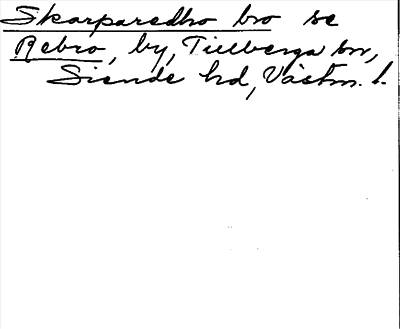 Skarparedho bro se
Rebro, by, Tillberga sn,
Siende hd, Västm. l.